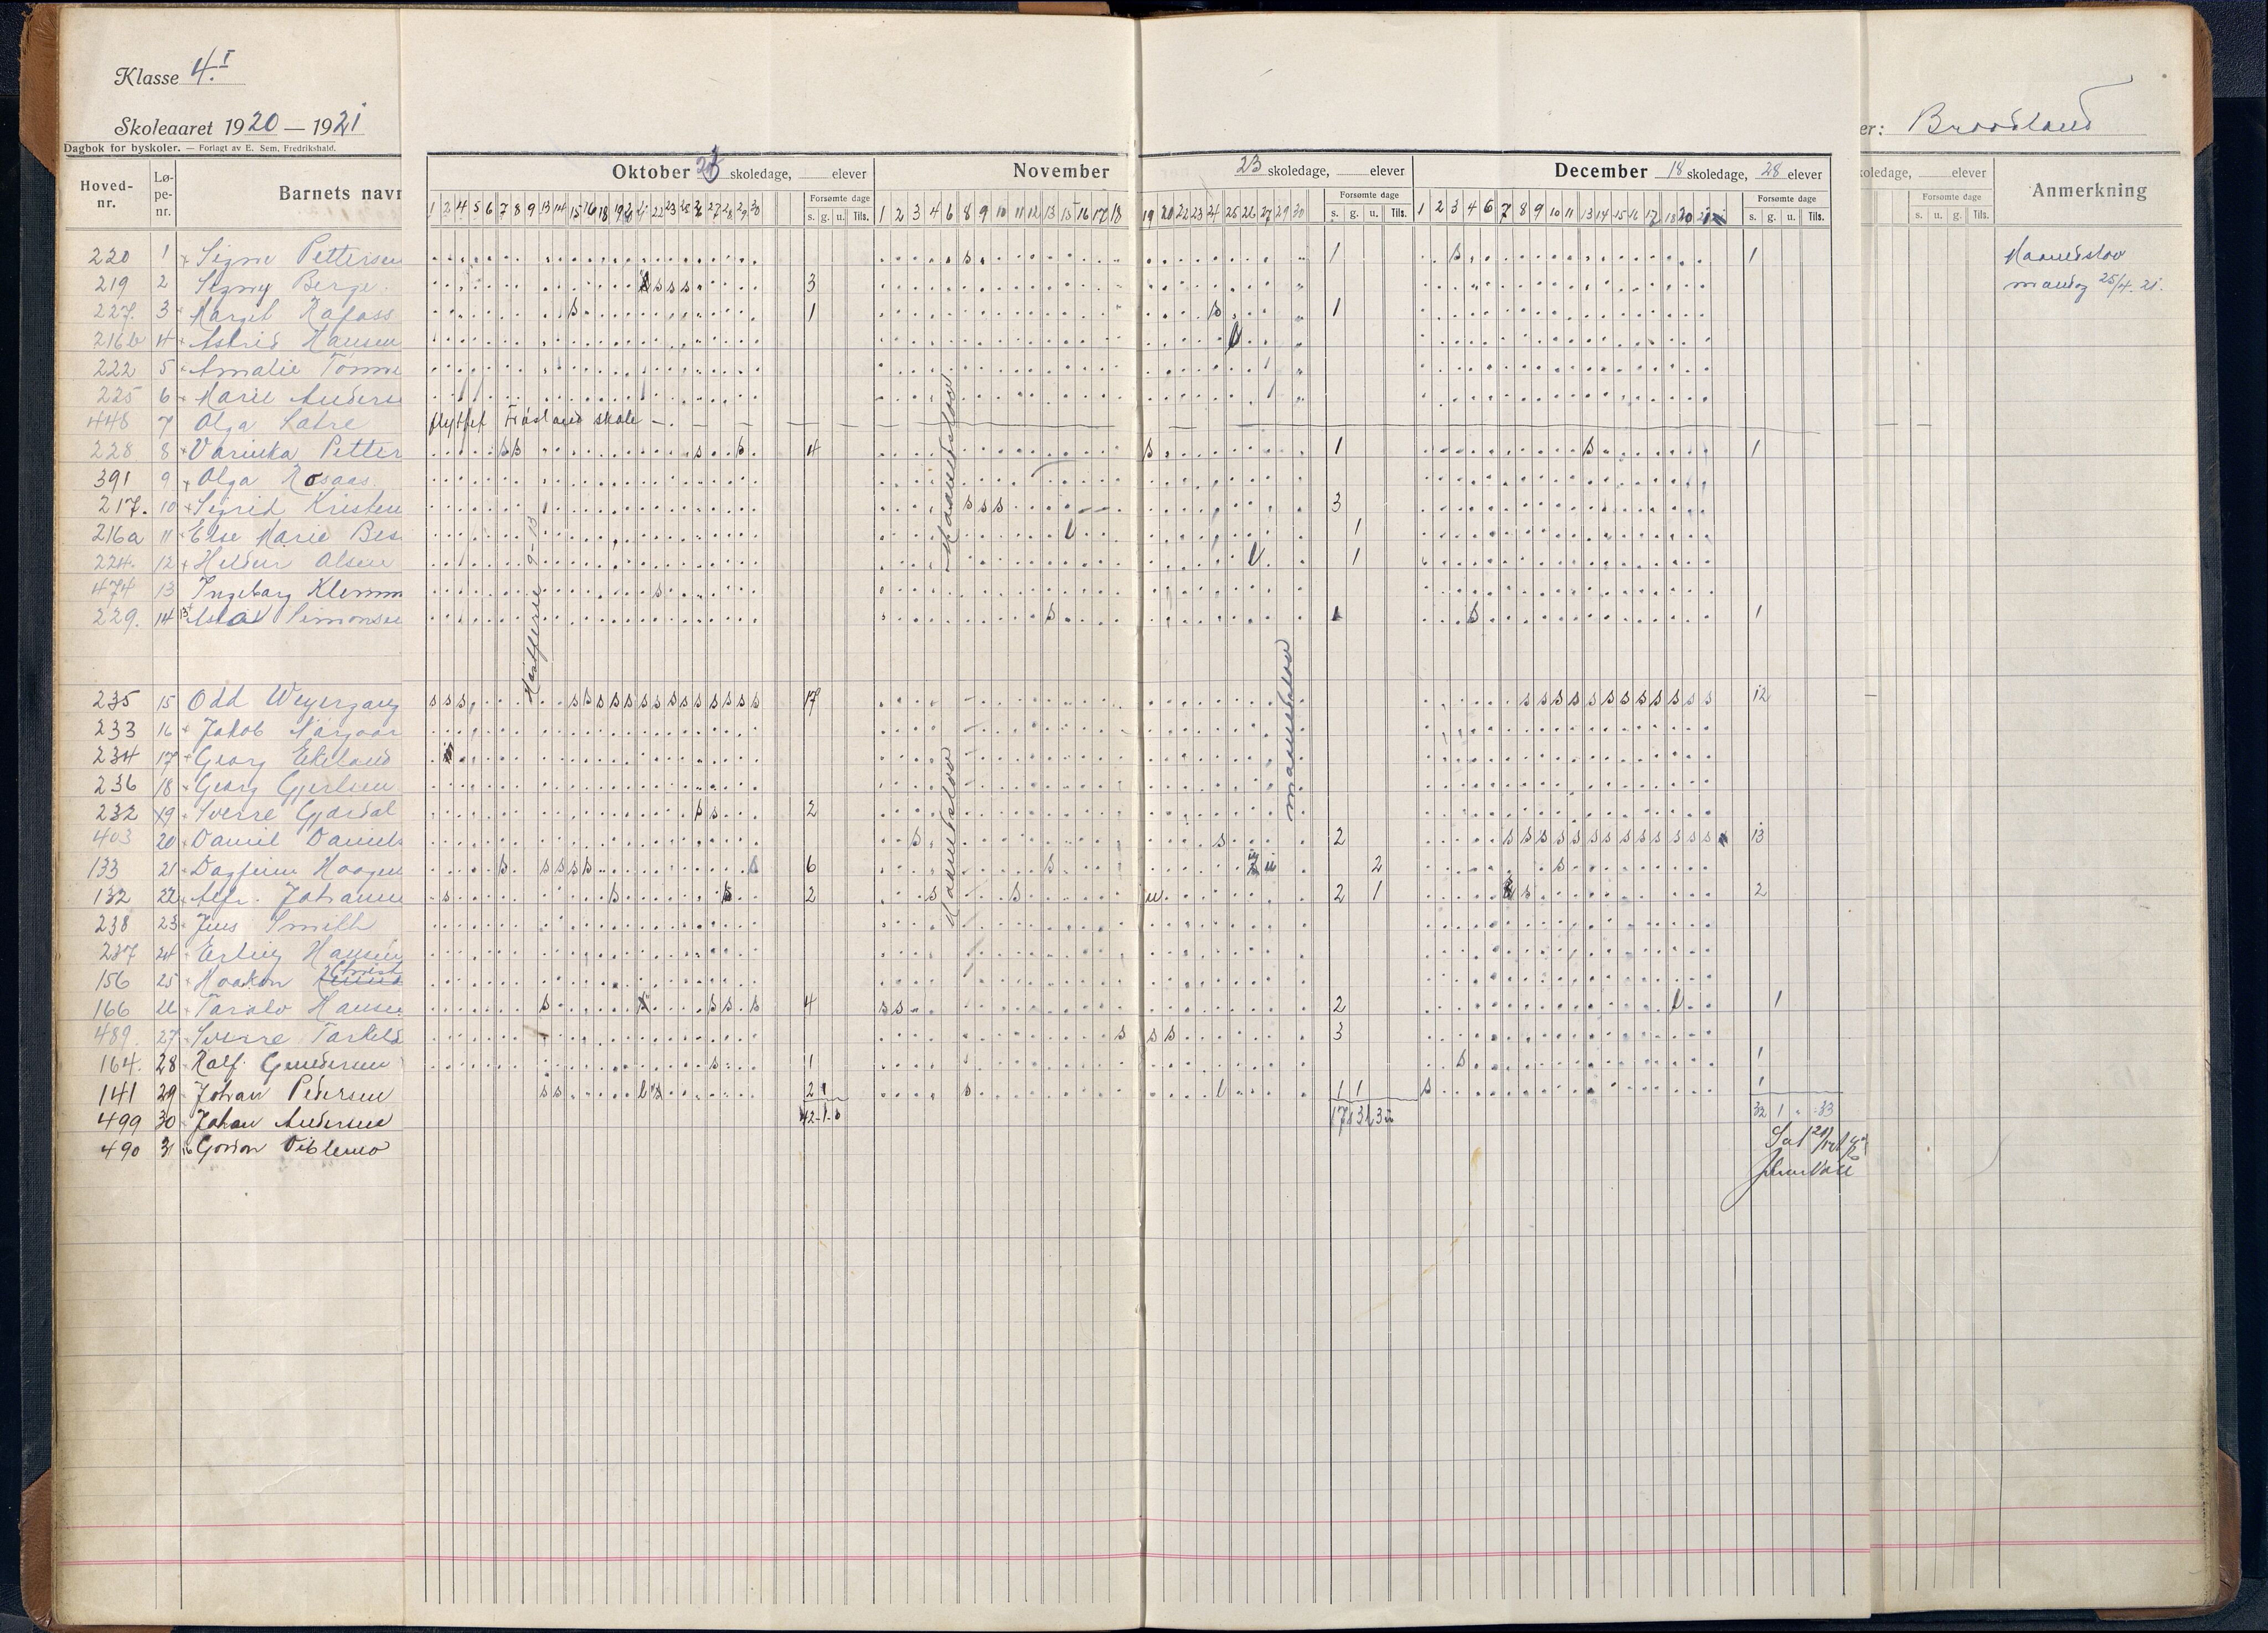 Klasse 4.I
Skoleaaret 1920 — 1921
Dagbok for byskoler. — Forlagt av E. Sem, Fredrikshald.
er: Braadland
Hoved-nr. Lø-pe-nr. Barnets navn
Oktober skoledage, elever
November 23 skoledage, elever
December 18 skoledage, 28 elever
koledage, elever Anmerkning
Forsømte dage Forsømte dage Forsømte dage Forsømte dage
s. g. u. Tils. s. g. u. Tils. s. g. u. Tils. s. u. g. Tils.
1 2 4 5 6 7 8 9 13 14 15 16 18 19 20 21 22 23 25 26 27 28 29 30
1 2 3 4 6 8 9 10 11 12 13 15 16 17 18 19 20 22 23 24 25 26 27 29 30
1 2 3 4 6 7 8 9 10 11 13 14 15 16 17 18 20 21
220 1 Signe Pettersen s 1 s 1
219 2 Signy Berge s s s 3
227. 3 Margit Rafoss s 1 s 1
216b 4 Astrid Hansen
222 5 Amalie Tönne
225 6 Marie Anders
448 7 Olga Satre flyttet Frøsland skole —
228 8 Varinka Petter s s s s 4 s 1 s 1
391 9 Olga Rosaas
217. 10 Sigrid Kristen s s s 3
216a 11 Else Marie Bes 1
224. 12 Helene Olsen 1
474 13 Ingeborg Klemm s
229. 14 Simonsen s 1 s 1
235 15 Odd Weyergang s s s s s s s s s s s s s s s s s 17 s s s s s s s s s s s s 12
233 16 Jakob
234 17 Georg Ekeland
236 18 Georg Gjertsen
232 19 Sverre Gjærdal s s 2
403 20 Daniel Daniels s s 2 s s s s s s s s s s s s s 13
133 21 Dagfinn Haagen s s s s s s 6 s 2 s
132 22 Alfr. Johanne s s s 2 s s u 2 1 s s 2
238 23 Jens Smith
237 24 Erling Hansen
156 25 Haakon Christ
166 26 Taralv Hansen s s s s 4 s s 2 1
489. 27 Sverre Tarkeld s s s 3
164. 28 Ralf. Gundersen s 1 s 1
141 29 Johan Pedersen s s 2 1 s 1 1 s 1
499 30 Johan Andersen 42-1-
490 31 Gordon Viblemo
32 1 " =33
Høstferie 9-13
Maanedslov
Maanedslov
maanedslov
Maanedslov
mandag 25/4.21.